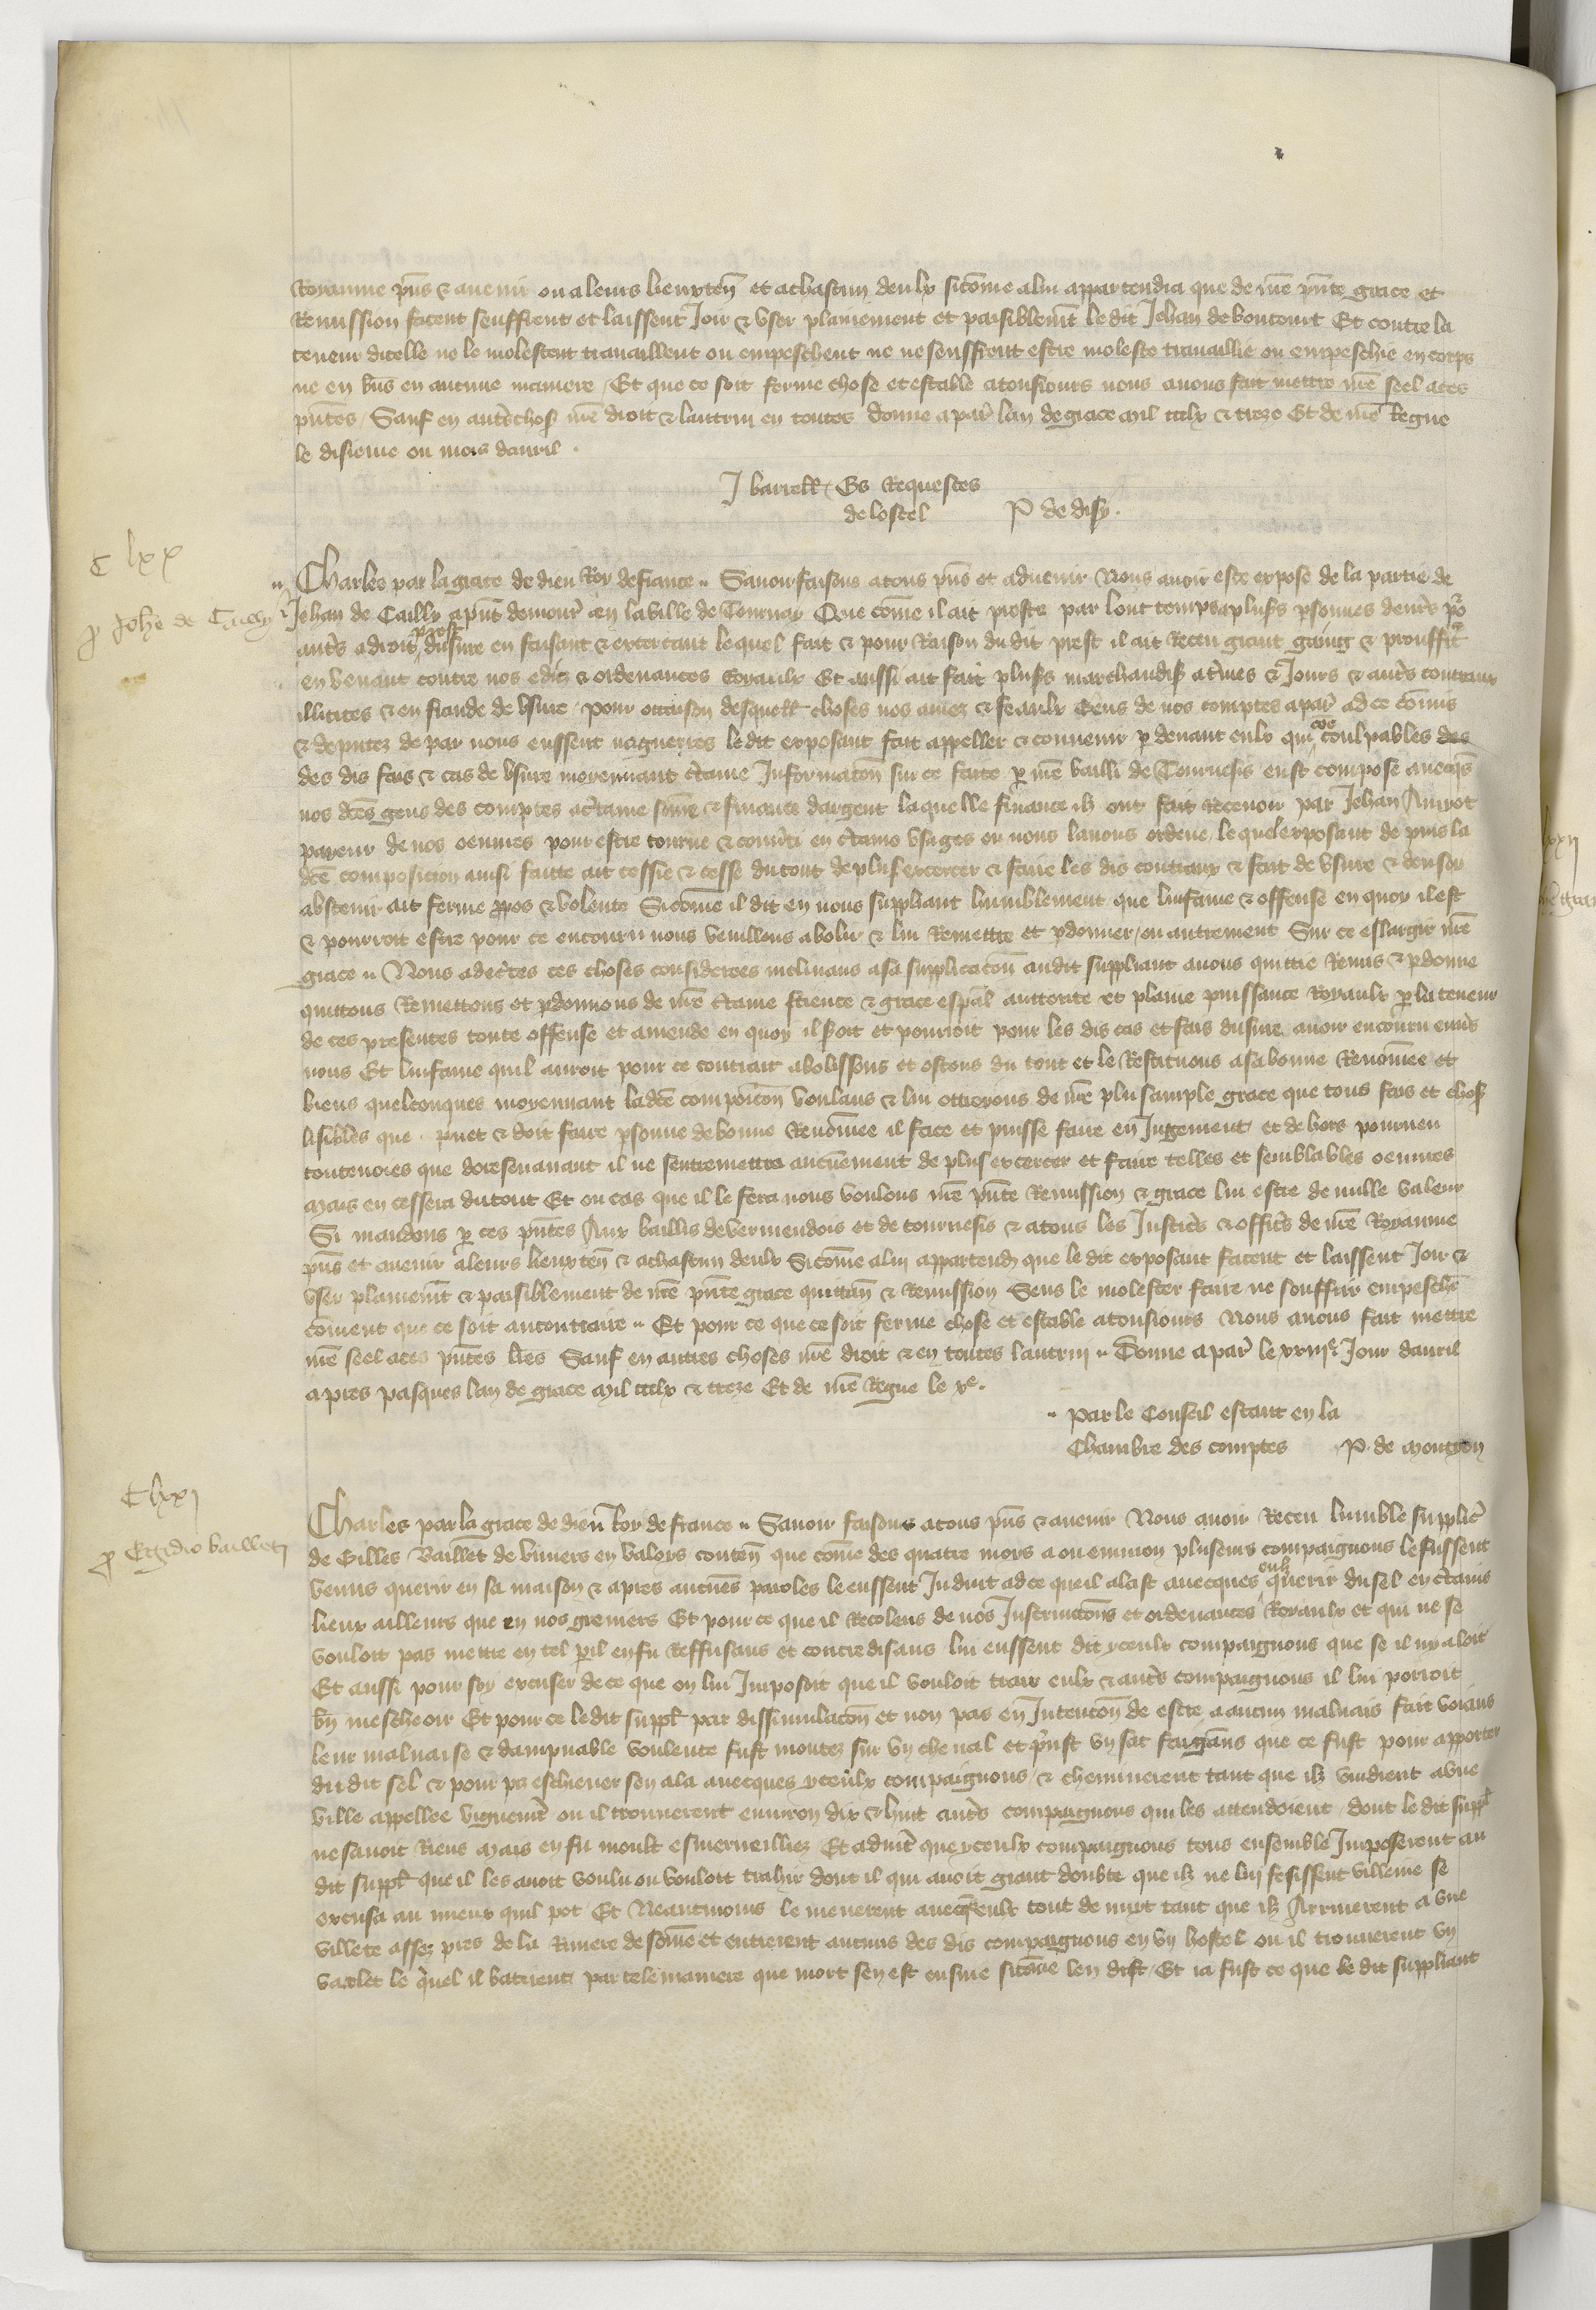 Royaume pñs & avenir ou a leurs lieuxteñ et a chascun deulx sicõme a lui appartendra que de nr̃e pñte grace et
Remission facent seuffrent et laissent Joir & user plainement et paisiblem̃t le dit Jehan de boucourt Et contre la
teneur dicelle ne le molestent travaillent ou empeschent ne ne seuffrent estre moleste travaillie ou empeschie en corps
ne en biẽs en aucune maniere Et que ce soit ferme chose et estable a tousiours nous avons fait mettre nr̃e seel a ces
pñtes Sauf en autres choses nr̃e droit & lautrui en toutes donne a par̃ lan de grace mil ccclx & treze Et de nr̃e Regne
le disieme ou mois davril .
J barrell Es Requestes
de lostel P de disy .
C lxx
p Johẽ de Cailly
Charles par la grace de dieu Roy de france Savoir faisons a tous pñs et advenir Nous avoir este expose de la partie de
Jehan de Cailly a pñt demour̃ en la ville de Tournay Que cõme il ait preste par lonc temps a plus̃s p̃sonnes deniers p̃
autr̃s a droit prest dusure en faisant & excercant lequel fait & pour Raison du dit prest il ait Receu grant gaing & prouffit
en venant contre nos edictz & ordenances Royaulx Et aussi ait fait plus̃s marchandis a t̃mes & Jours & autr̃s contraux
illicites & en fraude de usure pour occasion desquell choses nos amez & feaulx Gens de nos comptes a par̃ a ce cõmis
& deputez de par nous eussent nagueires le dit exposant fait appeller & convenir p devant eulx qui cõe coulpables des
des dis fais & cas de usure moyennant c̃taine Informacõn sur ce faite p nr̃e bailli de Tournesis eust compose avecq̃s
nos dc̃es gens des comptes a c̃taine sõme & finance dargent laquelle finance ilz ont fait Recevoir par Jehan Amiot
paieur de nos oeuvres pour estre tourne & conṽti en c̃tains usages ou nous lavons ordene lequel exposant depuis la
dc̃e composicion ainsi faicte ait cessie & cesse du tout de plus excercer & faire les dis contraux & fait de usure & den soy
abstenir ait ferme p̃pos & volente Sicõme il dit en nous suppliant humblement que linfame & offense en quoy il est
& pourroit estre pour ce encouru nous veuillons abolir & lui Remettre et p̃donner ou autrement Sur ce eslargir nr̃e
grace Nous adec̃tes ces choses considerees inclinans a sa supplicacõn au dit suppliant avons quittie Remis & p̃donne
quittons Remettons et p̃donnons de nr̃e c̃taine science & grace esp̃al auctorite et plaine puissance Royaulx p la teneur
de ces presentes toute offense et amende en quoy il soit et pourroit pour les dis cas et fais dusure avoir encouru env̾s
nous Et linfame quil auroit pour ce contrait abolissons et ostons du tout et le Restituons a sa bonne Renõmee et
biens quelconques moyennant ladc̃e compõicõn voulans & lui ottroyons de nr̃e plus ample grace que tous fais et chos̃
lisibles que puet & doit faire p̃sonne de bonne Renõmee il face et puisse faire en Jugement et dehors pourveu
toutevoies que doresenavant il ne sentremettra aucũnement de plus excercer et faire telles et semblables oeuvres
Mais en cessera du tout Et ou cas que il le fera nous voulons nr̃e pñte Remission & grace lui estre de nulle valeur
Si mandons p ces pñtes Aux baillis de vermendois et de tournesis & a tous les Justic̃s & offic̃s de nr̃e Royaume
pñs et avenir a leurs lieuxteñ & a chascun deulx Sicõme a lui appartend̃ que le dit exposant facent et laissent Joir &
user plainem̃t & paisiblement de nr̃e pñte grace quittañ & Remission Sens le molester faire ne souffrir empeschẽ
cõment que ce soit au contraire Et pour ce que ce soit ferme chose et estable a tousiours Nous avons fait mettre
nr̃e seel a ces pñtes lr̃es Sauf en autres choses nr̃e droit & en toutes lautrui Donne a par̃ le xxiiij͛ Jour davril
apres pasques lan de grace mil ccclx & treze Et de nr̃e Regne le xͤ .
Par le Conseil estant en la
Chambre des comptes P. de Montyon
C lxxj
p Egidio baillet
Charles par la grace de dieu Roy de france Savoir faisons a tous pñs & avenir Nous avoir Receu lumble supplic̃
de Gilles Baillet de bimers en Valoys conteñ que cõme des quatre mois a ou environ pluseurs compaignons le fussent
venus querir en sa maison & apres aucũes paroles le eussent Induit ad ce que il alast avecques eulx querir du sel en c̃tains
lieux ailleurs que en nos greniers Et pour ce que il Recolens de nos Instruccõns et ordenances Royaulx et qui ne se
vouloit pas mettre en tel peril en fu Reffusans et contredisans lui eussent dit yceulx compaignons que se il ny aloit
Et aussi pour soy excuser de ce que on lui Imposoit que il vouloit trair eulx & autr̃s compaignons il lui porroit
bñ mescheoir Et pour ce le dit suppl̃ par dissimulacõn et non pas en Intencõn de estre a aucun malvais fait voians
leur malvaise & dampnable voulente fust montez sur un cheval et p̃nst un sac faignans que ce fust pour apporter
du dit sel & pour ps eschever sen ala avecques yceulx compaignons & cheminerent tant que ilz vindrent a une
ville appellee vignem̃t ou il trouverent environ dix & huit autr̃s compaignons qui les attendoient dont le dit suppl̃
ne savoit Riens Mais en fu moult esmerveilliez Et advint que yceulx compaignons tous ensemble Imposerent au
dit suppl̃ que il les avoit voulu ou vouloit trahir dont il qui avoit grant doubte que ilz ne lui fesissent villenie se
excusa au mieux quil pot Et Neantmoins le menerent avecq̃s eulx tout de nuyt tant que ilz Arriverent a une
villete assez pres de la Riviere de sõme et entrerent aucuns des dis compaignons en un hostel ou il trouverent un
varlet le quel il batirent par tele maniere que mort sen est ensuie sicõme len dist Et ia fust ce que le dit suppliant